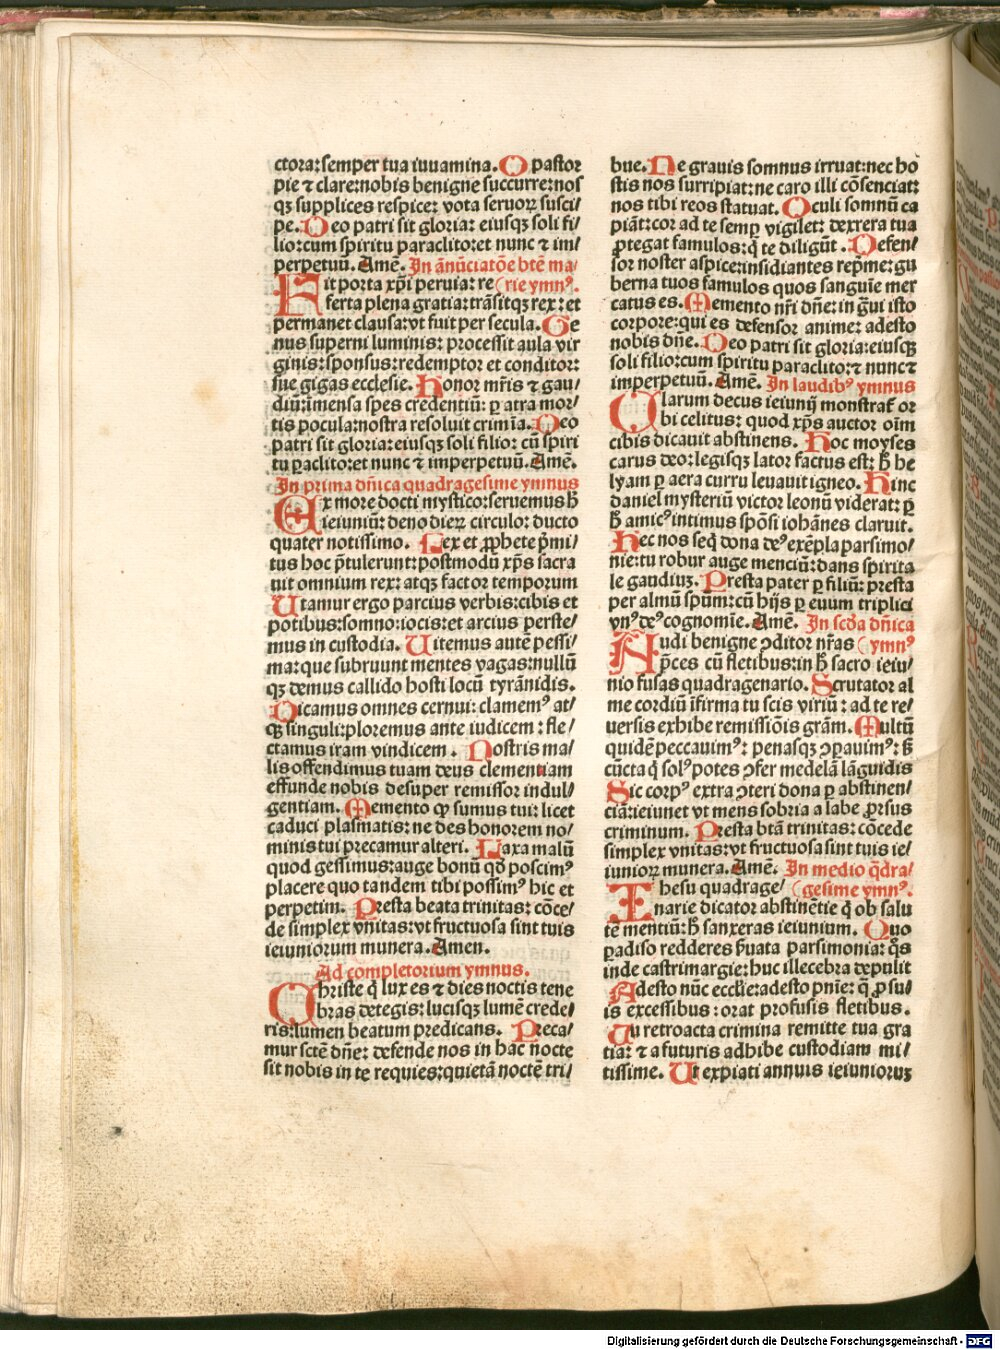 ctora: semper tua iuuamina. O pastor
pie ⁊ clare: nobis benigne succurre: nos
qꝫ supplices respice: vota seruoꝝ susci⸗
pe. Deo patri sit gloria: eiusqꝫ soli fi⸗
lio: cum spiritu paraclito: et nunc ⁊ im⸗
perpetuū. Amē. In ānūciatōe btē ma⸗
Fit porta xp̄i peruia: re (rie ymnꝰ.
ferta plena gratia: trāsitqꝫ rex: et
permanet clausa: vt fuit per secula. Ge
nus superni luminis: processit aula vir
ginis: sponsus: redemptor et conditor:
sue gigas ecclesie. Honor mr̄is ⁊ gau⸗
diū: īmensa spes credentiū: ꝑ atra mor⸗
tis pocula: nostra resoluit crimīa. Deo
patri sit gloria: eiusqꝫ soli filio: cū spiri
tu ꝑaclito: et nunc ⁊ imperpetuū. Amē.
In prima dn̄ica quadragesime ymnus
Ex more docti mystico: seruemus h̄
ieiuniū: deno dieꝝ circulo: ducto
quater notissimo. Lex et ꝓphete p̄mi⸗
tus hoc p̄tulerunt: postmodū xp̄s sacra
uit omnium rex: atqꝫ factor temporum
Utamur ergo parcius verbis: cibis et
potibus: somno: iocis: et arcius perste⸗
mus in custodia. Uitemus autē pessi⸗
ma: que subruunt mentes vagas: nullū
qꝫ demus callido hosti locū tyrānidis.
Dicamus omnes cernui: clamemꝰ at⸗
qꝫ singuli: ploremus ante iudicem: fle⸗
ctamus iram vindicem. Nostris ma⸗
lis offendimus tuam deus clementiam
effunde nobis desuper remissor indul⸗
gentiam. Memento ꝙ sumus tui: licet
caduci plasmatis: ne des honorem no⸗
minis tui precamur alteri. Laxa malū
quod gessimus: auge bonū qd̄ poscimꝰ
placere quo tandem tibi possimꝰ hic et
perpetim. Presta beata trinitas: cōce⸗
de simplex vnitas: vt fructuosa sint tuis
ieiuniorum munera. Amen.
Ad completorium ymnus.
Christe q̄ lux es ⁊ dies noctis tene
bras detegis: lucisqꝫ lumē crede⸗
ris: lumen beatum predicans. Preca⸗
mur sctē dn̄e: defende nos in hac nocte
sit nobis in te requies: quietā noctē tri⸗
bue. Ne grauis somnus irruat: nec ho
stis nos surripiat: ne caro illi cōsenciat:
nos tibi reos statuat. Oculi somnū ca
piāt: cor ad te semꝑ vigilet: dextera tua
ꝓtegat famulos: q̄ te diligūt. Defen⸗
sor noster aspice: insidiantes rep̄me: gu
berna tuos famulos quos sanguīe mer
catus es. Memento nr̄i dn̄e: in ḡui isto
corpore: qui es defensor anime: adesto
nobis dn̄e. Deo patri sit gloria: eiusqꝫ
soli filio: cum spiritu paraclito: ⁊ nunc ⁊
imperpetuū. Amē. In laudibꝰ ymnus
Clarum decus ieiunij monstrat᷑ or
bi celitus: quod xp̄s auctor oīm
cibis dicauit abstinens. Hoc moyses
carus deo: legisqꝫ lator factus est: h̄ he
lyam ꝑ aera curru leuauit igneo. Hinc
daniel mysteriū victor leonū viderat: ꝑ
h̄ amicꝰ intimus spōsi iohānes claruit.
Hec nos seq̄ dona deꝰ exēpla parsimo⸗
nie: tu robur auge menciū: dans spirita
le gaudiuꝫ. Presta pater ꝑ filiū: presta
per almū spūm: cū hijs ꝑ euum triplici
vnꝰ deꝰ cognomīe. Amē. In scd̄a dn̄ica
Audi benigne ꝯditor nr̄as (ymnꝰ
p̄ces cū fletibus: in h̄ sacro ieiu⸗
nio fusas quadragenario. Scrutator al
me cordiū īfirma tu scis viriū: ad te re⸗
uersis exhibe remissiōis grām. Multū
quidē peccauimꝰ: penasqꝫ ꝯpauimꝰ: s̄
cūcta q̄ solꝰ potes ꝯfer medelā lāguidis
Sic corpꝰ extra ꝯteri dona ꝑ abstinen⸗
ciā: ieiunet vt mens sobria a labe ꝓrsus
criminum. Presta btā trinitas: cōcede
simplex vnitas: vt fructuosa sint tuis ie⸗
iunioꝝ munera. Amē. In medio q̄dra⸗
Ihesu quadrage⸗ (gesime ymnꝰ.
narie dicator abstinētie q̄ ob salu
tē mentiū: h̄ sanxeras ieiunium. Quo
ꝑadiso redderes s̄uata parsimonia: q̄s
inde castrimargie: huc illecebra depulit
Adesto nūc ecclīe: adesto pnīe: q̄ ꝓ su⸗
is excessibus: orat profusis fletibus.
Tu retroacta crimina remitte tua gra
tia: ⁊ a futuris adhibe custodiam mi⸗
tissime. Ut expiati annuis ieiunioruꝫ
Digitalisierung gefördert durch die Deutsche Forschungsgemeinschaft - DFG